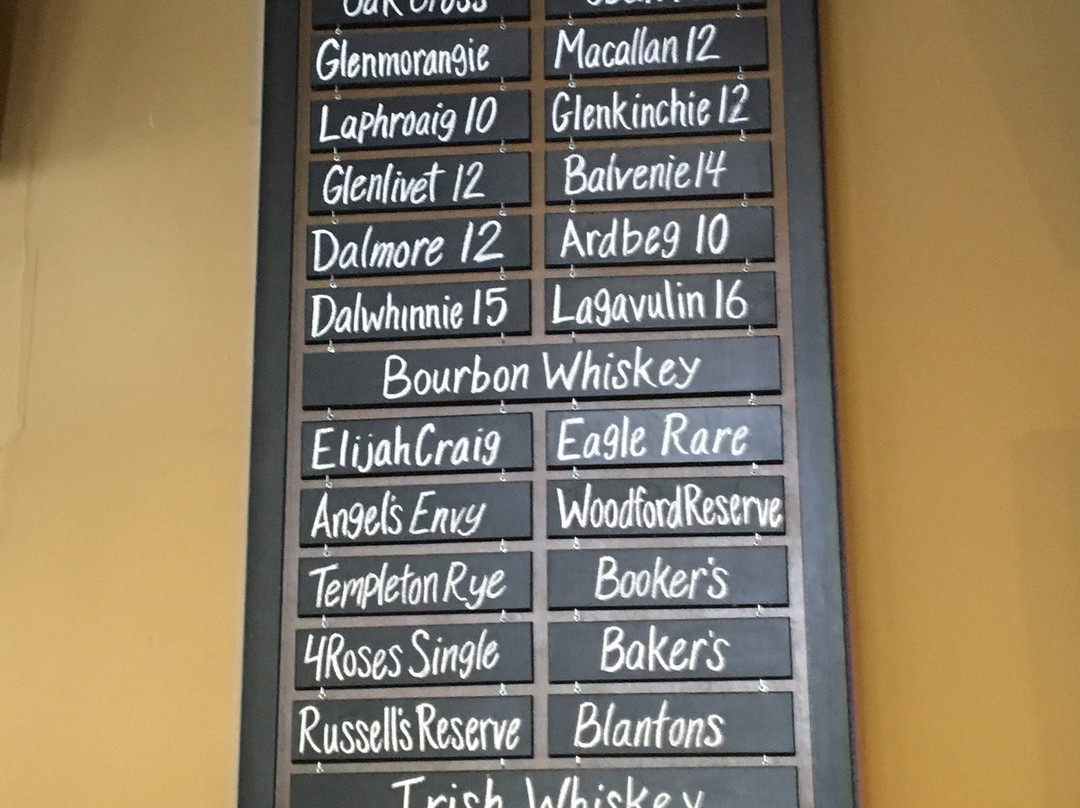 Oak Cross
Glenmorangie Macallan 12
Laphroaig 10 Glenkinchie 12
Glenlivet 12 Balvenie 14
Dalmore 12 Ardbeg 10
Dalwhinnie 15 Lagavulin 16
Bourbon Whiskey
Elijah Craig Eagle Rare
Angel's Envy Woodford Reserve
Templeton Rye Booker's
4Roses Single Baker's
Russell's Reserve Blantons
Irish Whiskey